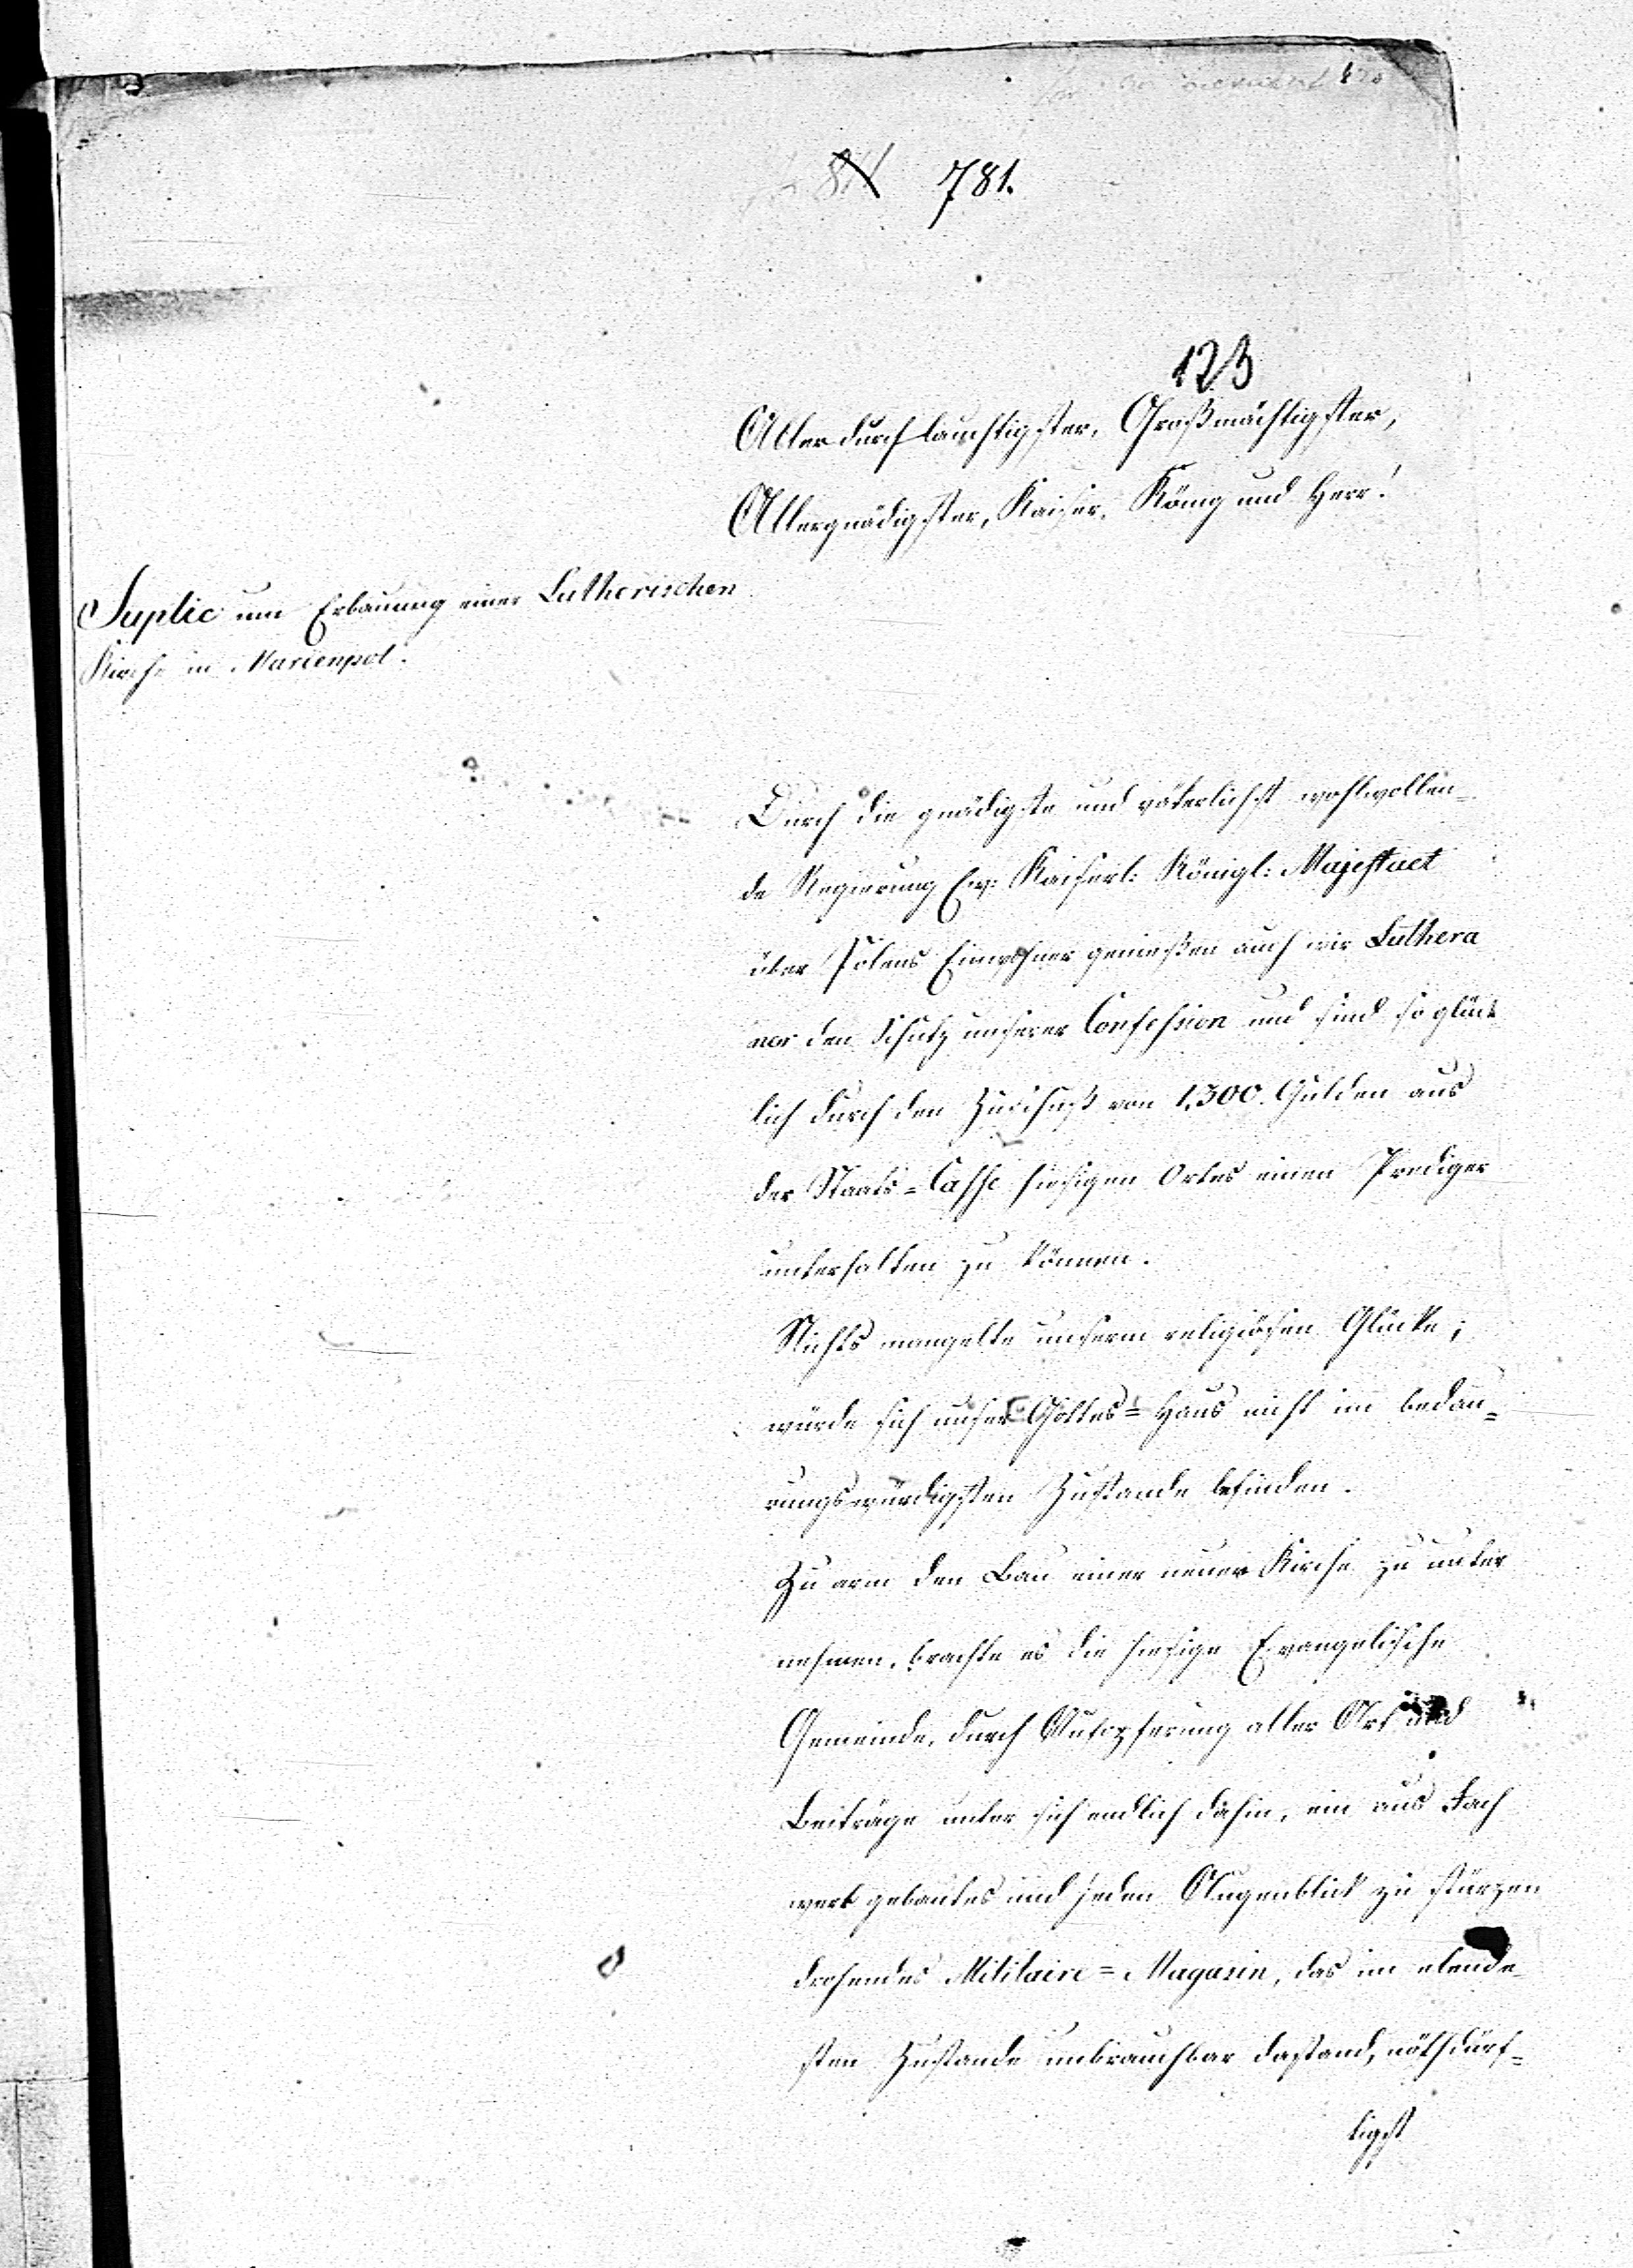 781.
123
Allerdurchlauchtigster, Großmächtigster,
Allergnädigster, Kaiser, König und Herr!
Suplic um Erbauung einer Lutherischen
Kirche in Marienpol.
Durch die gnädigste und väterlichst wohlwollen=
de Regierung Ew: Kaiserl: Königl: Majestaet
über Polens Einwohner genießen auch wir Luthera
ner den Schutz unserer Confession und sind so glück
lich durch den Zuschuß von 1,300. Gulden aus
der Staats=Casse hiesigen Ortes einen Prediger
unterhalten zu können.
Nichts mangelte unserm religiösen Glücke;
würde sich unser Gottes=Haus nicht im bedau=
rungswürdigsten Zustande befinden.
Zu arm den Bau einer neuen Kirche zu unter
nehmen, brachte es die hiesige Evangelische
Gemeinde, durch Aufopferung aller Art und
Beiträge unter sich endlich dahin, ein aus Fach
werk gebautes und jeden Augenblick zu stürzen
drohendes Militaire=Magasin, das im elende
sten Zustande unbrauchbar dastand, nothdürf=
tigst